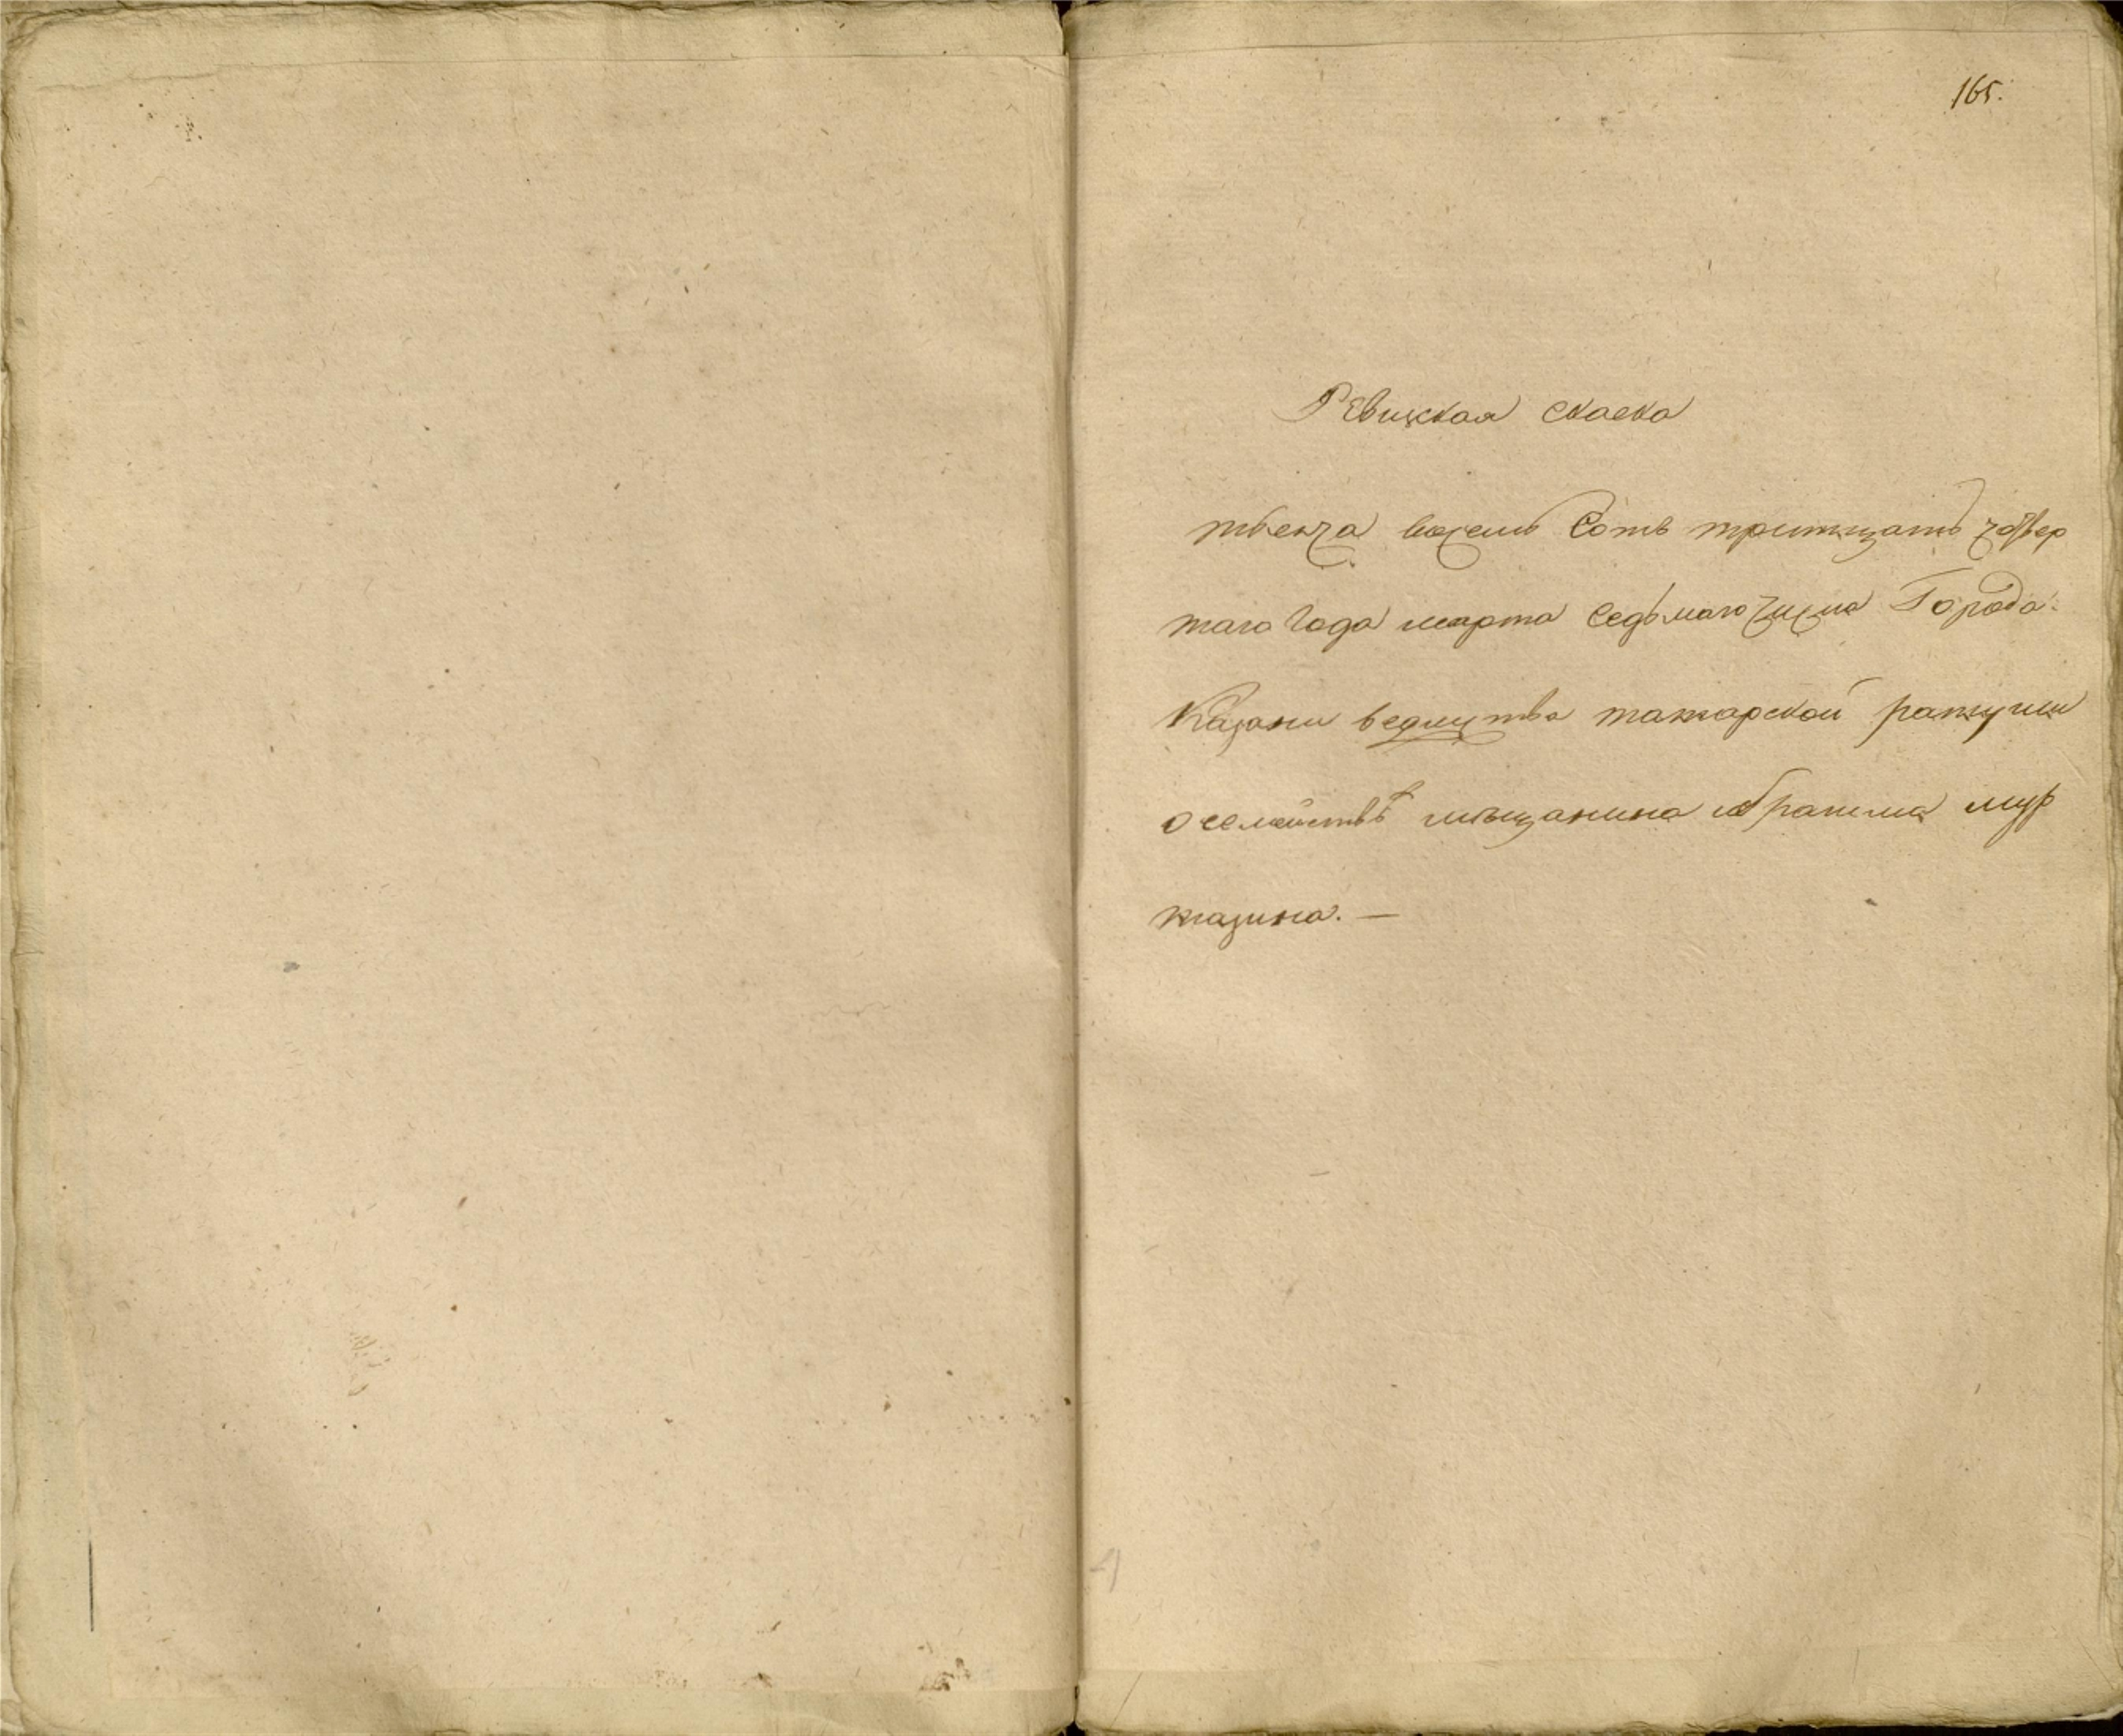 165.
Ревижская скаска
тысеча восемь Сотъ тритцать четвер
таго Года марта Седьмаго числа Города
Казани ведомства татарской ратуши
о семействѣ мѣщанина ибрагима мур
тазина. —